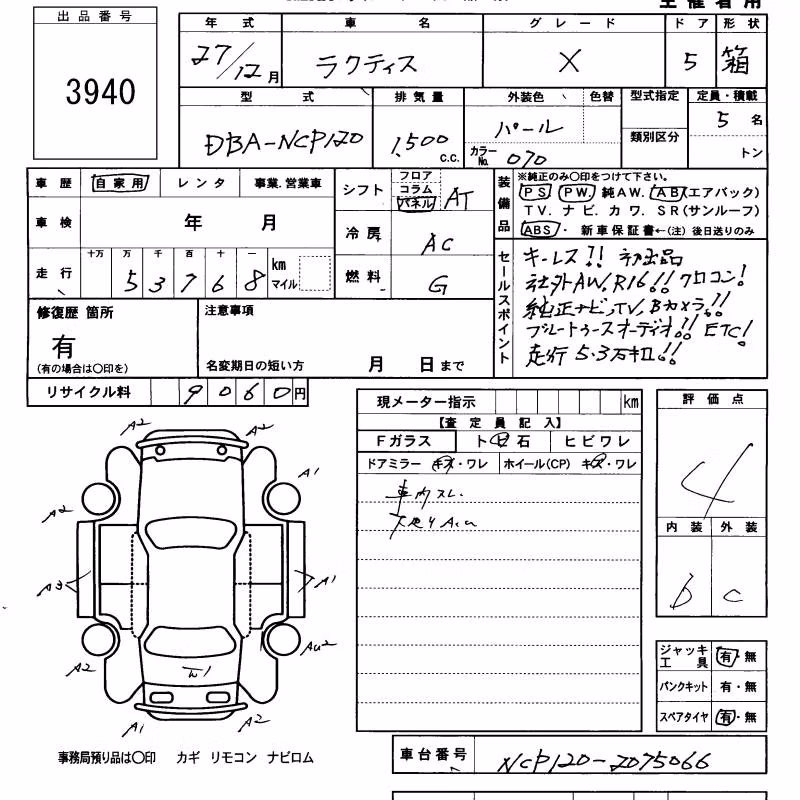 主催者用
出品番号
3940
年式 車名 グレード ドア 形状
27/12月 ラクティス X 5 箱
型式 排気量 外装色 色替 型式指定 定員・積載
DBA-NCP120 1,500 C.C. パール 5名
カラーNo. 070 類別区分 トン
車歴 自家用 レンタ 事業.営業車
シフト フロア コラム パネル AT
車検 年 月
冷房 AC
走行 十万 万 千 百 十 一 km マイル
5 3 7 6 8
燃料 G
装備品
※純正のみ○印をつけて下さい。
PS PW 純AW. AB(エアバック)
TV. ナビ. カワ. SR(サンルーフ)
ABS・ 新車保証書←(注)後日送りのみ
セールスポイント
キーレス!! 初出品
社外AW,R16!! クロコン!
純正ナビ,TV,Bカメラ!!
ブルートゥースオーディオ!! ETC!
走行5.3万キロ!!
修復歴 箇所
有
(有の場合は○印を)
注意事項
名変期日の短い方 月 日まで
リサイクル料 9060円
現メーター指示 km
【査定員記入】
Fガラス トビ石 ヒビワレ
ドアミラー キズ・ワレ ホイール(CP) キズ・ワレ
車内スレ.
評価点
4
内装 外装
b c
A2 A2
A1
A2
A3 A1
A2 AU2
A1 A2
ジャッキ工具 有・無
パンクキット 有・無
スペアタイヤ 有・無
事務局預り品は○印 カギ リモコン ナビロム
車台番号 NCP120-2075066